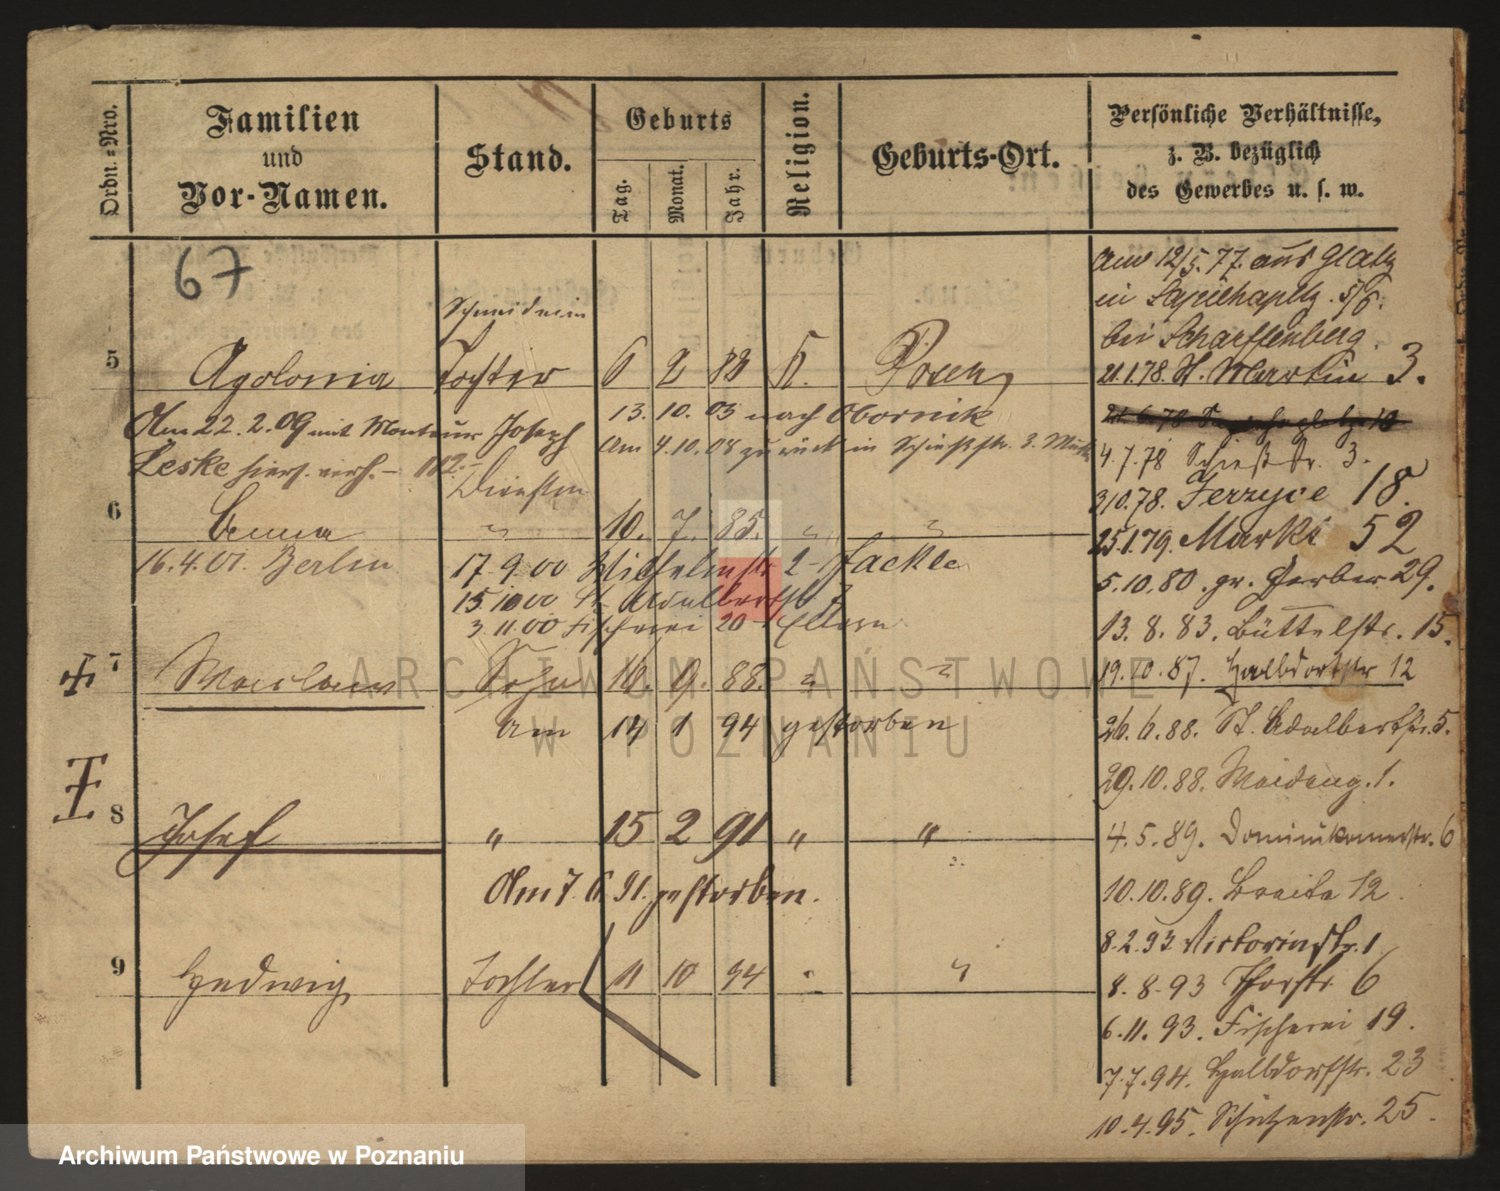 Ordn.-Nro.
Familien
und
Vor-Namen.
Stand.
Geburts
Tag.
Monat.
Jahr.
Religion.
Geburts-Ort.
Persönliche Verhältnisse,
z. B. bezüglich
des Gewerbes u. s. w.
67
Am 12/5.77. aus Glatz
in Sapiehapltz. 5/6.
bei Scharffenberg.
21.1.78. St. Martin 3.
4.7.78 Schießstr. 3.
3.10.78. Jerzyce 18.
25.1.79. Markt 52
5.10.80. gr. Gerber 29.
13.8.83. Büttelstr. 15.
19.10.87. Halbdorfstr 12
26.6.88. St. Adalbertstr. 5.
29.10.88. Waideng. 1.
4.5.89. Dominikanerstr. 6
10.10.89. Breite 12
8.2.93 Victoriastr. 1
8.8.93 Thorstr 6
6.11.93. Fischerei 19.
7.7.94. Halbdorfstr. 23
10.4.95. Schützenstr. 25.
Schneiderin
5 Apolonia Tochter 6 2 83 K. Posen
13.10.03 nach Obornik
Am 22.2.09 mit Monteur Joseph
Am 4.10.08 zurück in Schießstr. 3.
Leske hiers. verh. –
Dienstm
6 Anna " 10. 7. 85. " "
16.4.01. Berlin
17.9.00 Wilhelmstr 2
15.10.00 St Adalbertstr 7
3 11.00 Fischerei 20 Eltern
7 Sohn 16. 9. 88. " "
Am 14 1 94 gestorben
8 Josef " 15 2 91 " "
Am 7 6. 91. gestorben.
9 Hedwig Tochter 11 10 94 "
ARCHIWUM PAŃSTWOWE
W POZNANIU
Archiwum Państwowe w Poznaniu